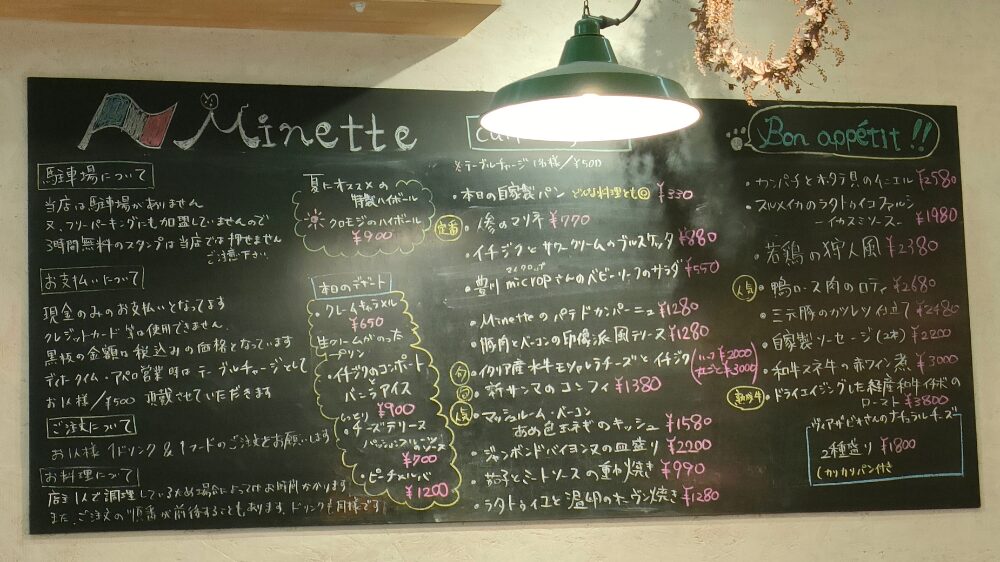 Minette
駐車場について
当店は駐車場がありません
又、フリーパーキングにも加盟していませんので
3時間無料のスタンプは当店では押せません
ご注意下さい
お支払いについて
現金のみのお支払いとなってます
クレジットカード等は使用できません
黒板の金額は税込みの価格となっています
ディナータイム・アペロ営業時はテーブルチャージとして
お1人様/¥500 頂戴させていただきます
ご注文について
お1人様 1ドリンク&1フードのご注文をお願いします
お料理について
店主1人で調理しているため場合によってはお時間かかります
また、ご注文の順番が前後することもあります。ドリンクも同様です
夏にオススメの
特製ハイボール
クロモジのハイボール
¥900
本日のデザート
・クレームキャラメル
¥650
生クリームがのった
プリン
・イチジクのコンポート
と
バニラアイス
¥900
・チーズテリーヌ
¥700
・ピーチメルバ
¥1200
※テーブルチャージ 1名様/¥500
・本日の自家製パン どんな料理とも◎ ¥330
定番
・人参のマリネ ¥770
・イチジクとサワークリームのブルスケッタ ¥880
・豊川micropさんのベビーリーフのサラダ ¥550
マイクロップ
・Minetteのパテドカンパーニュ ¥1280
・豚肉とベーコンの印象派風テリーヌ ¥1280
・イタリア産水牛モッツァレラチーズとイチジク
ハーフ ¥2000
丸ごと ¥3000
旬
・新サンマのコンフィ ¥1380
人気
・マッシュルーム、ベーコン
あめ色玉ネギのキッシュ ¥1580
・ジャンボンドバイヨンヌの皿盛り ¥2200
・茄子とミートソースの重ね焼き ¥990
・ラタトゥイユと温卵のオーヴン焼き ¥1280
Bon appétit!!
・カンパチとホタテ貝のムニエル ¥2580
・スルメイカのラタトゥイユファルシ
-イカスミソース- ¥1980
・若鶏の狩人風 ¥2380
人気
・鴨ロース肉のロティ ¥2680
・三元豚のカツレツ仕立て ¥2480
・自家製ソーセージ(2本) ¥2200
・和牛スネ牛の赤ワイン煮 ¥3000
熟成牛
・ドライエイジングした経産和牛イチボの
ロースト ¥3800
さんのナチュラルチーズ
2種盛り ¥1800
(カリカリパン付き